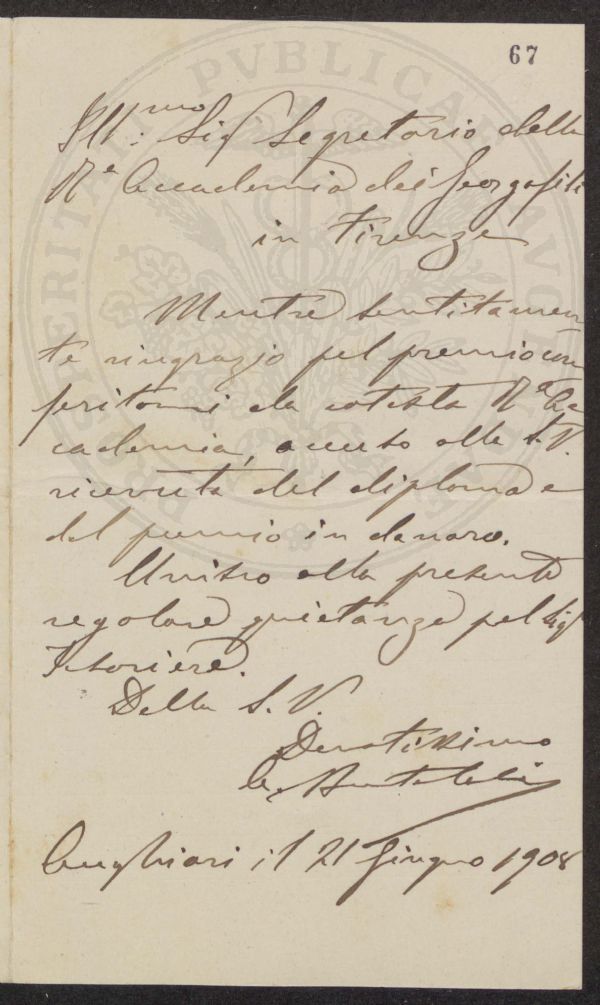 67
Ill.mo Sig Segretario della
Rª Accademia dei Georgofili
in Firenze
Mentre sentitamen
te ringrazio pel premio con
feritomi da cotesta Rª Ac
cademia, accuso alla S.V.
ricevuta del diploma e
del premio in danaro.
Unisco alla presente
regolare quietanza pel Sig
Tesoriere.
Della S. V.
Devotissimo
Anghiari il 21 Giugno 1908
PROSPERITATI PVBLICAE AVGENDAE